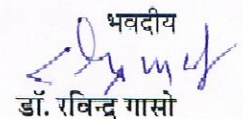 भवदीय
डॉ. रविन्द्र गासो